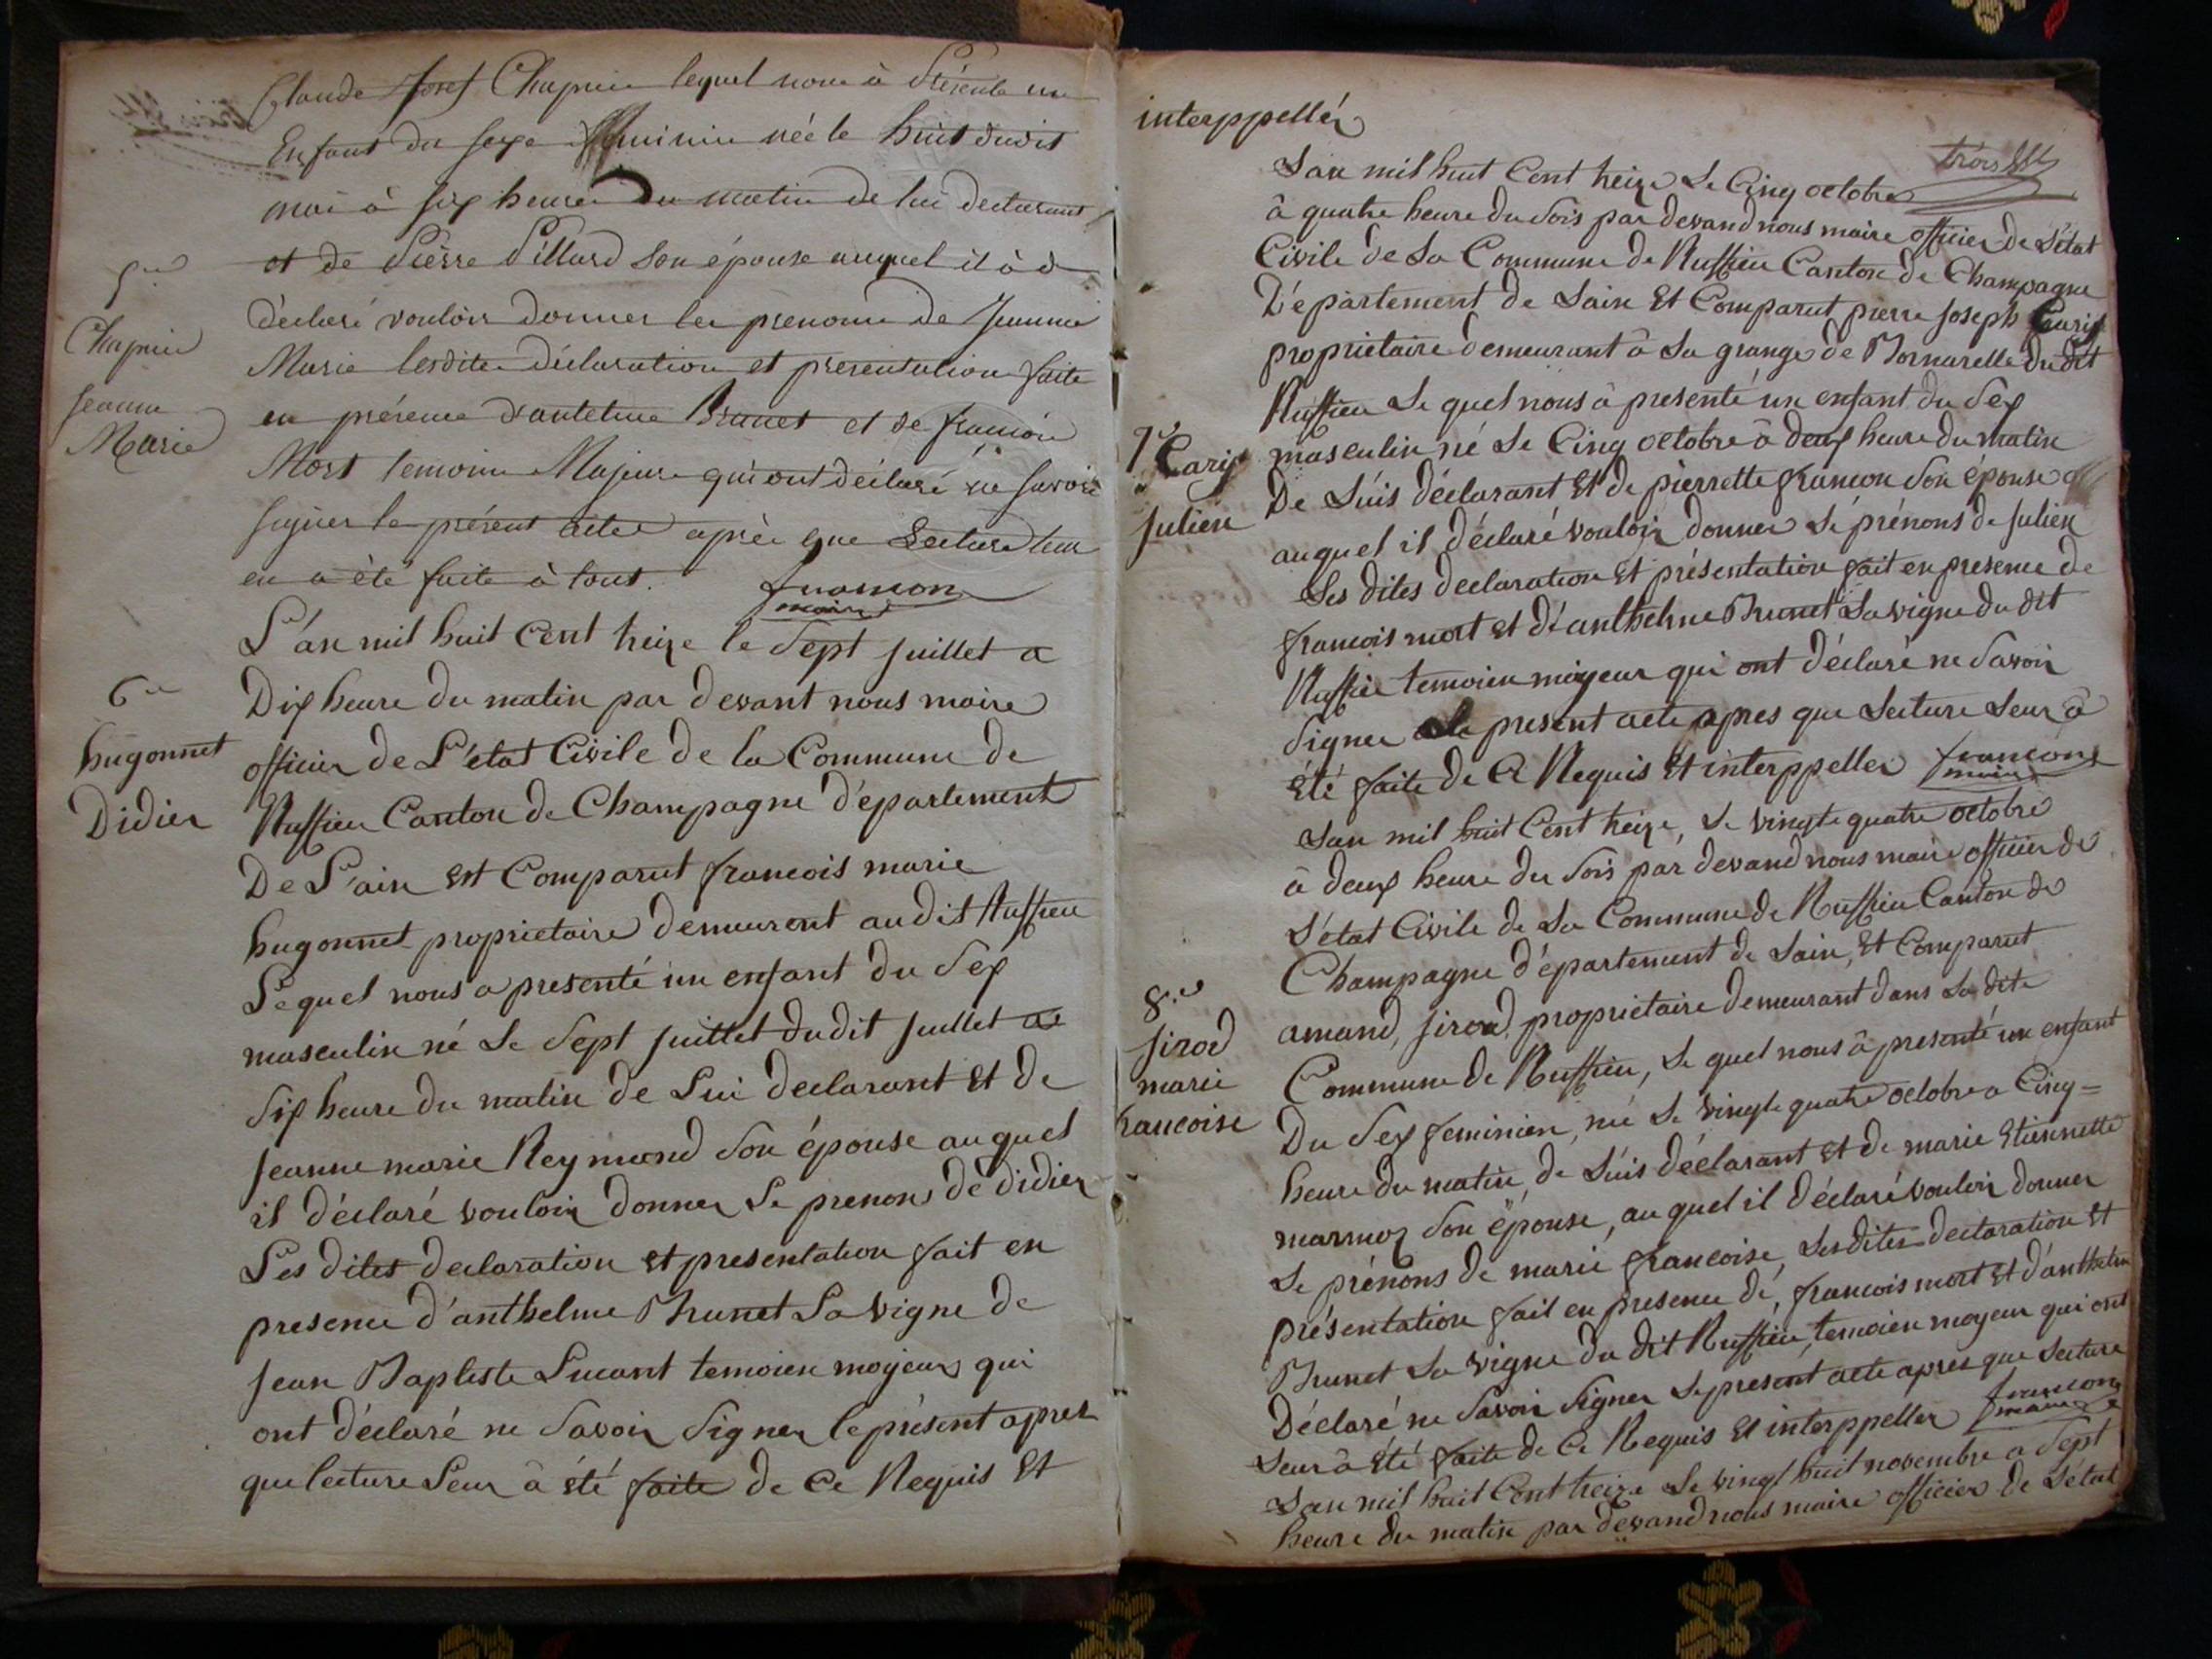 Claude Josef Chapuis lequel nous à Présenté un
Enfant du sexe féminin née le huit dudit
moi à six heure du matin de lui declarant
et de Pierre Pillard son épouse auquel il à d
déclaré vouloir donner les prenoms de Jeanne
Marie lesdites déclaration et presentation faite
en présence d'antelme Brunet et de françois
Mort temoins Majeurs qui ont déclaré ne savoir
signer le présent acte après que Lecture leur
en a été faite à tous. françon
maire
5me
Chapuis
Jeanne
Marie
L'an mil huit Cent treize le Sept juillet a
Dix heure du matin par devant nous maire
officier de L'état Civile de la Commune de
Ruffieu Canton de Champagne département
De L'ain Est Comparut francois marie
hugonnet proprietaire demeurent audit Ruffieu
Lequel nous a presenté un enfant du Sex
masculin né Le Sept juillet dudit juillet a
Six heure du matin de Lui declarant Et de
jeanne marie Reymond Son épouse auquel
il déclaré vouloir donner Le prenons de didier
Les dites declaration Et presentation fait en
presence d'anthelme Brunet La vigne de
jean Baptiste Lucant temoien mojeur qui
ont déclaré ne Savoir Signer le présent apres
que lecture Leur à été faite de Ce Requis Et
6me
hugonnet
Didier
interppellér
trois
Lan mil huit Cent treize Le Cinq octobre
à quatre heure du Soir par devand nous maire officier de L'état
Civile de La Commune de Ruffieu Canton de Champagne
Département de Lain Est Comparut pierre joseph Carif
proprietaire demeurant à La grange de Bornarelle dudit
Ruffieu Le quel nous à presenté un enfant du Sex
masculin né Le Cinq octobre à deux heure du matin
De Luis déclarant Et de pierrette françon Son épouse
auquel il déclaré vouloir donner Le prénons de julien
Les dites declaration Et présentation fait en presence de
francois mort Et d'anthelme Brunet La vigne du dit
Ruffieu temoien mojeur qui ont déclaré ne Savoir
Signer Le present acte apres que Lecture Leur à
Été faite de Ce Requis Et interppeller françon
maire
7e
Carif
julien
Lan mil huit Cent treize, Le vingte quatre octobre
à deux heure du Soir par devand nous maire officier de
L'état Civile de La Commune de Ruffieu Canton de
Champagne département de Lain, Est Comparut
amand, jirod, proprietaire demeurant dans La dite
Commune de Ruffieu, Le quel nous à presenté un enfant
Du Sex feminien, née Le vingte quatre octobre a Cinq=
heure du matin, de Luis déclarant Et de marie Etiennette
marmoz Son épouse, au quel il déclaré vouloir donner
Le prénons de marie francoise, Les dites declaration Et
présentation fait en presence de, francois mort Et d'anthelme
Brunet La vigne du dit Ruffieu, temoien mojeur qui ont
Déclaré ne Savoir Signer Le present acte apres que Lecture
Leur à Été faite de Ce Requis Et interppeller françon
maire
8me
jirod
marie
francoise
Lan mil huit Cent treize Le vingt huit novembre a Sept
heure du matin par devand nous maire officier de L'état